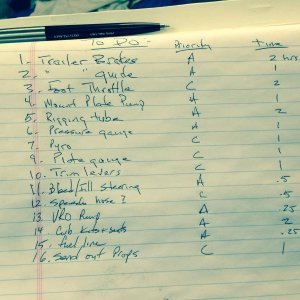 TO DO - Priority Time
1. Trailer Brakes A 2 hrs
2. " " guide A 1
3. Foot Throttle C 2
4. Mount Plate Pump A 1
5. Rigging tube A 2
6. Pressure gauge A 1
7. Pyro C 1
9. Plate gauge C 1
10. Trim levers C 1
11. Bleed/fill steering A .5
12. speedo hose ? C .5
13. VRO Pump A .25
14. Carb A 2
15. fuel line A .25
16. Send out Props C 1